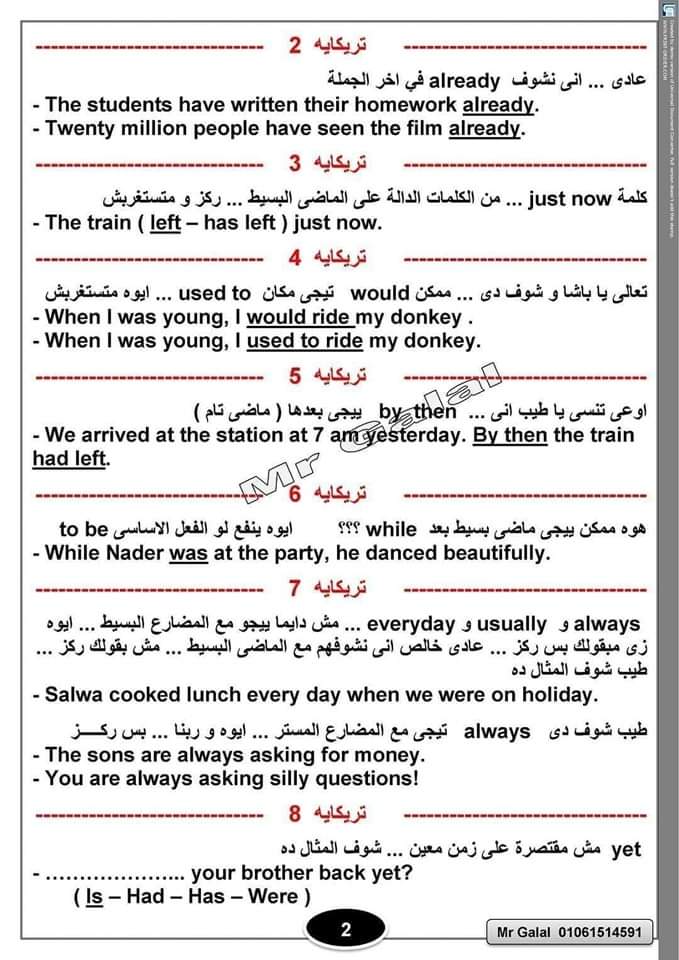 تريكايه 2
عادى ... انى نشوف already في اخر الجملة
- The students have written their homework already.
- Twenty million people have seen the film already.
تريكايه 3
كلمة just now ... من الكلمات الدالة على الماضى البسيط ... ركز و متستغربش
- The train ( left – has left ) just now.
تريكايه 4
تعالى يا باشا و شوف دى ... ممكن would تيجى مكان used to ... ايوه متستغربش
- When I was young, I would ride my donkey .
- When I was young, I used to ride my donkey.
تريكايه 5
اوعى تنسى يا طيب انى ... by then ييجى بعدها ( ماضى تام )
- We arrived at the station at 7 am yesterday. By then the train
had left.
Mr Galal
تريكايه 6
هوه ممكن ييجى ماضى بسيط بعد while ؟؟؟ ايوه ينفع لو الفعل الاساسى to be
- While Nader was at the party, he danced beautifully.
تريكايه 7
always و usually و everyday ... مش دايما ييجو مع المضارع البسيط ... ايوه
زى مبقولك بس ركز ... عادى خالص انى نشوفهم مع الماضى البسيط ... مش بقولك ركز ...
طيب شوف المثال ده
- Salwa cooked lunch every day when we were on holiday.
طيب شوف دى always تيجى مع المضارع المستر ... ايوه و ربنا ... بس ركـــز
- The sons are always asking for money.
- You are always asking silly questions!
تريكايه 8
yet مش مقتصرة على زمن معين ... شوف المثال ده
- ………………... your brother back yet?
( Is – Had – Has – Were )
2
Mr Galal 01061514591